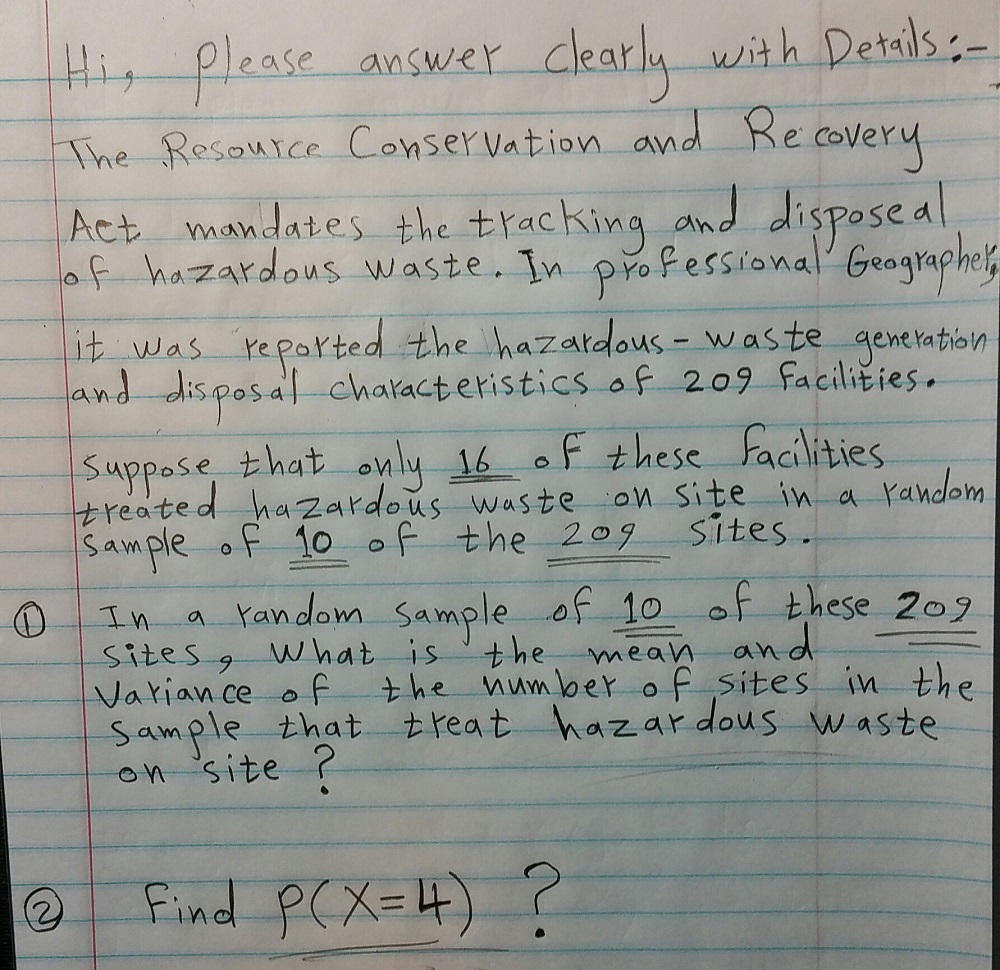 Hi, Please answer clearly with Details:-
The Resource Conservation and Recovery
Act mandates the tracking and disposeal
of hazardous waste. In professional Geographer,
it was reported the hazardous-waste generation
and disposal characteristics of 209 facilities.
Suppose that only 16 of these facilities
treated hazardous waste on site in a random
sample of 10 of the 209 sites.
① In a random sample of 10 of these 209
sites, What is the mean and
Variance of the number of sites in the
sample that treat hazardous waste
on site?
② Find P(X=4) ?